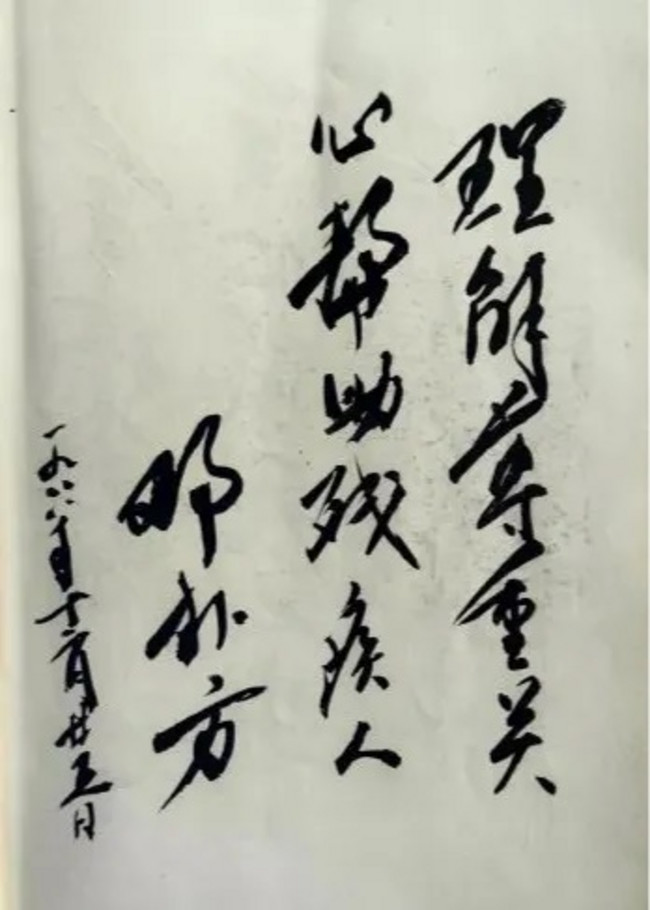 理解尊重关
心帮助残疾人
邓朴方
一九八八年十二月廿五日